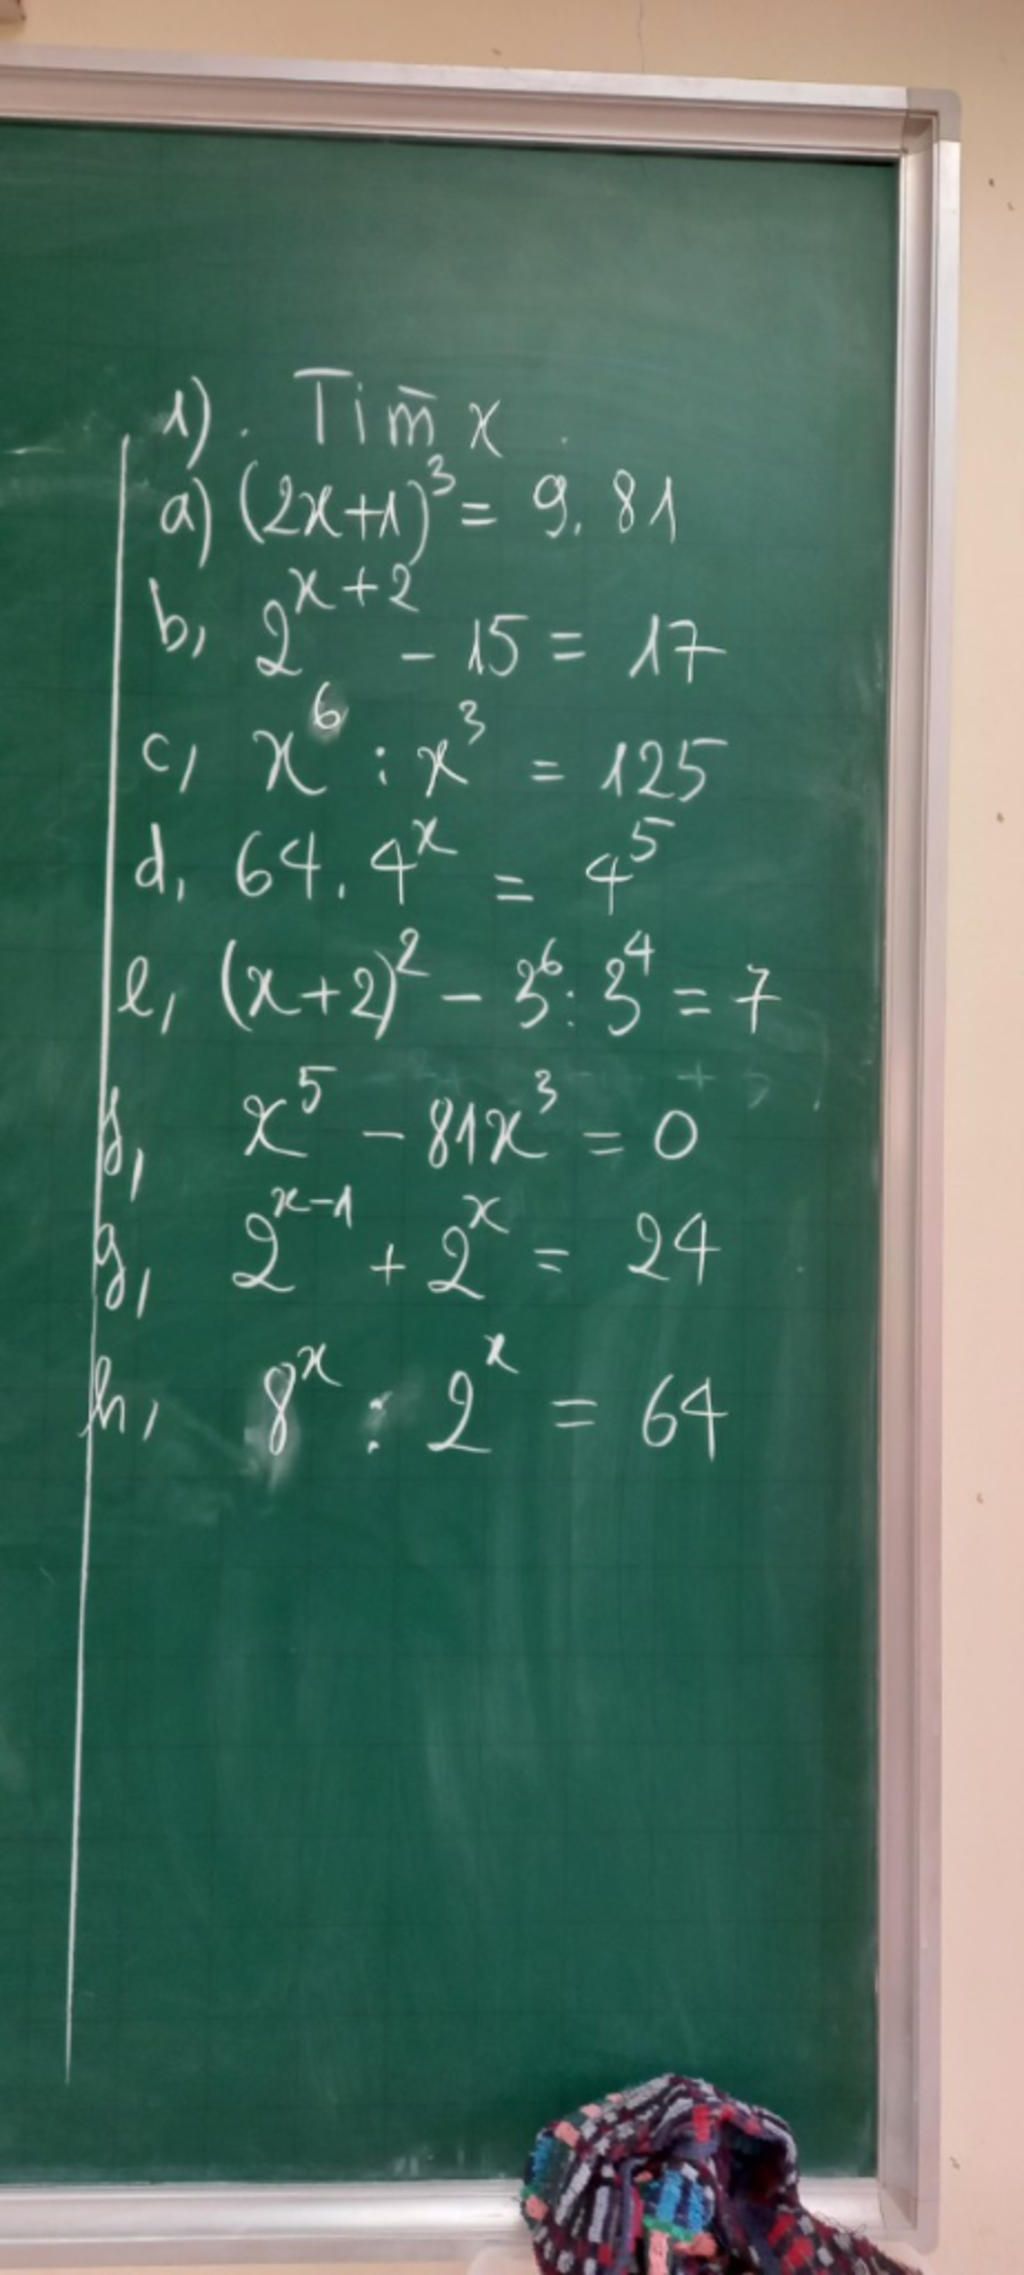 1). Tìm x.
a) (2x+1)³ = 9.81
b, 2ˣ⁺² - 15 = 17
c, x⁶ : x³ = 125
d, 64.4ˣ = 4⁵
e, (x+2)² - 3⁶ : 3⁴ = 7
f, x⁵ - 81x³ = 0
g, 2ˣ⁻¹ + 2ˣ = 24
h, 8ˣ : 2ˣ = 64